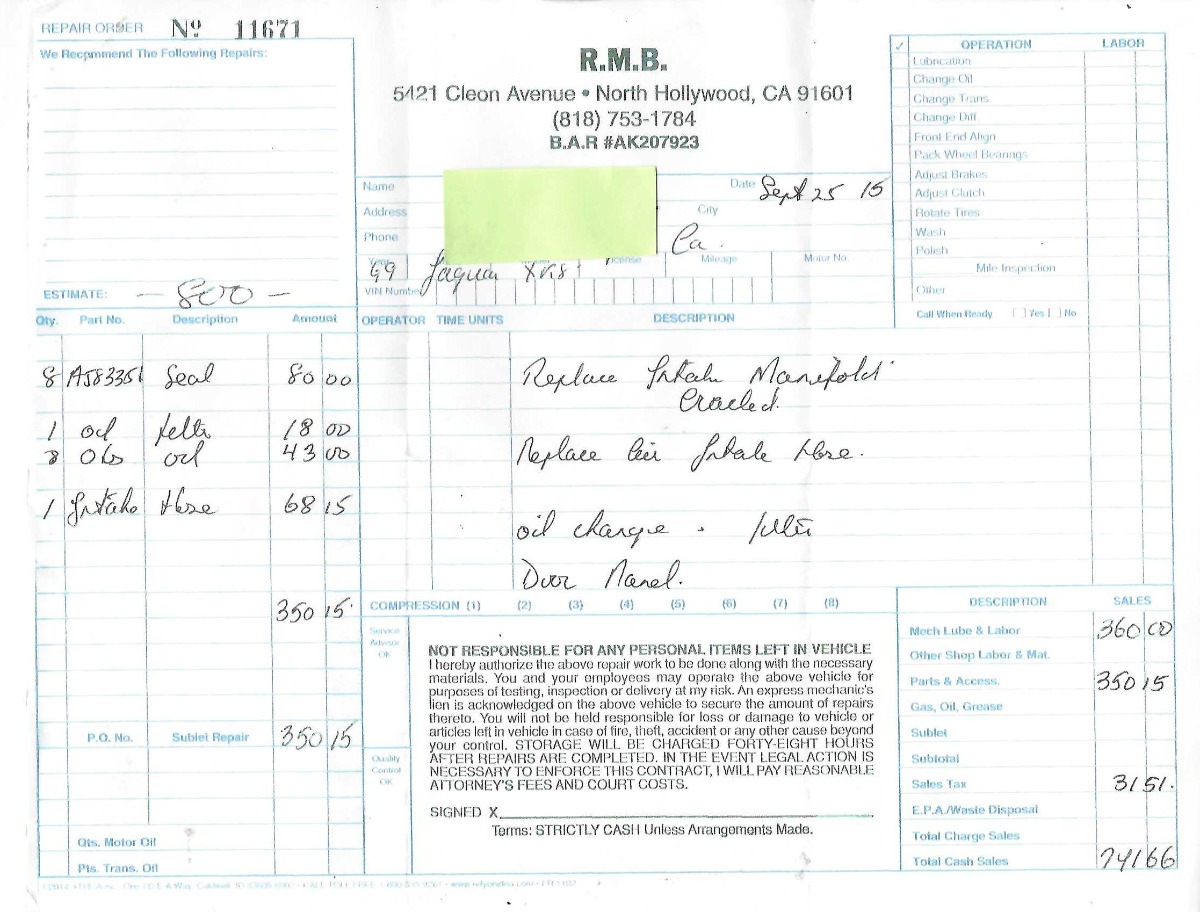 REPAIR ORDER Nº 11671
We Recommend The Following Repairs:
ESTIMATE: — 800 —
R.M.B.
5421 Cleon Avenue • North Hollywood, CA 91601
(818) 753-1784
B.A.R #AK207923
Name
Date Sept 25 15
Address
City
Phone
Ca.
License Mileage Motor No.
99 Jaguar
VIN Number
✓ OPERATION LABOR
Lubrication
Change Oil
Change Trans.
Change Diff.
Front End Align
Pack Wheel Bearings
Adjust Brakes
Adjust Clutch
Rotate Tires
Wash
Polish
Mile Inspection
Other
Call When Ready Yes No
Qty. Part No. Description Amount
8 AJ83351 Seal 80 00
1 oil filter 18 00
8 Qts oil 43 00
1 Intake Hose 68 15
350 15
P.O. No. Sublet Repair 350 15
Qts. Motor Oil
Pts. Trans. Oil
OPERATOR TIME UNITS DESCRIPTION
Replace Intake Manifold
Cracked.
Replace Air Intake Hose.
oil change . filter
Door Panel.
COMPRESSION (1) (2) (3) (4) (5) (6) (7) (8)
Service
Advisor
OK
Quality
Control
OK
NOT RESPONSIBLE FOR ANY PERSONAL ITEMS LEFT IN VEHICLE
I hereby authorize the above repair work to be done along with the necessary
materials. You and your employees may operate the above vehicle for
purposes of testing, inspection or delivery at my risk. An express mechanic's
lien is acknowledged on the above vehicle to secure the amount of repairs
thereto. You will not be held responsible for loss or damage to vehicle or
articles left in vehicle in case of fire, theft, accident or any other cause beyond
your control. STORAGE WILL BE CHARGED FORTY-EIGHT HOURS
AFTER REPAIRS ARE COMPLETED. IN THE EVENT LEGAL ACTION IS
NECESSARY TO ENFORCE THIS CONTRACT, I WILL PAY REASONABLE
ATTORNEY'S FEES AND COURT COSTS.
SIGNED X
Terms: STRICTLY CASH Unless Arrangements Made.
DESCRIPTION SALES
Mech Lube & Labor 360 00
Other Shop Labor & Mat.
Parts & Access. 350 15
Gas, Oil, Grease
Sublet
Subtotal
Sales Tax 31 51.
E.P.A./Waste Disposal
Total Charge Sales
Total Cash Sales 741 66